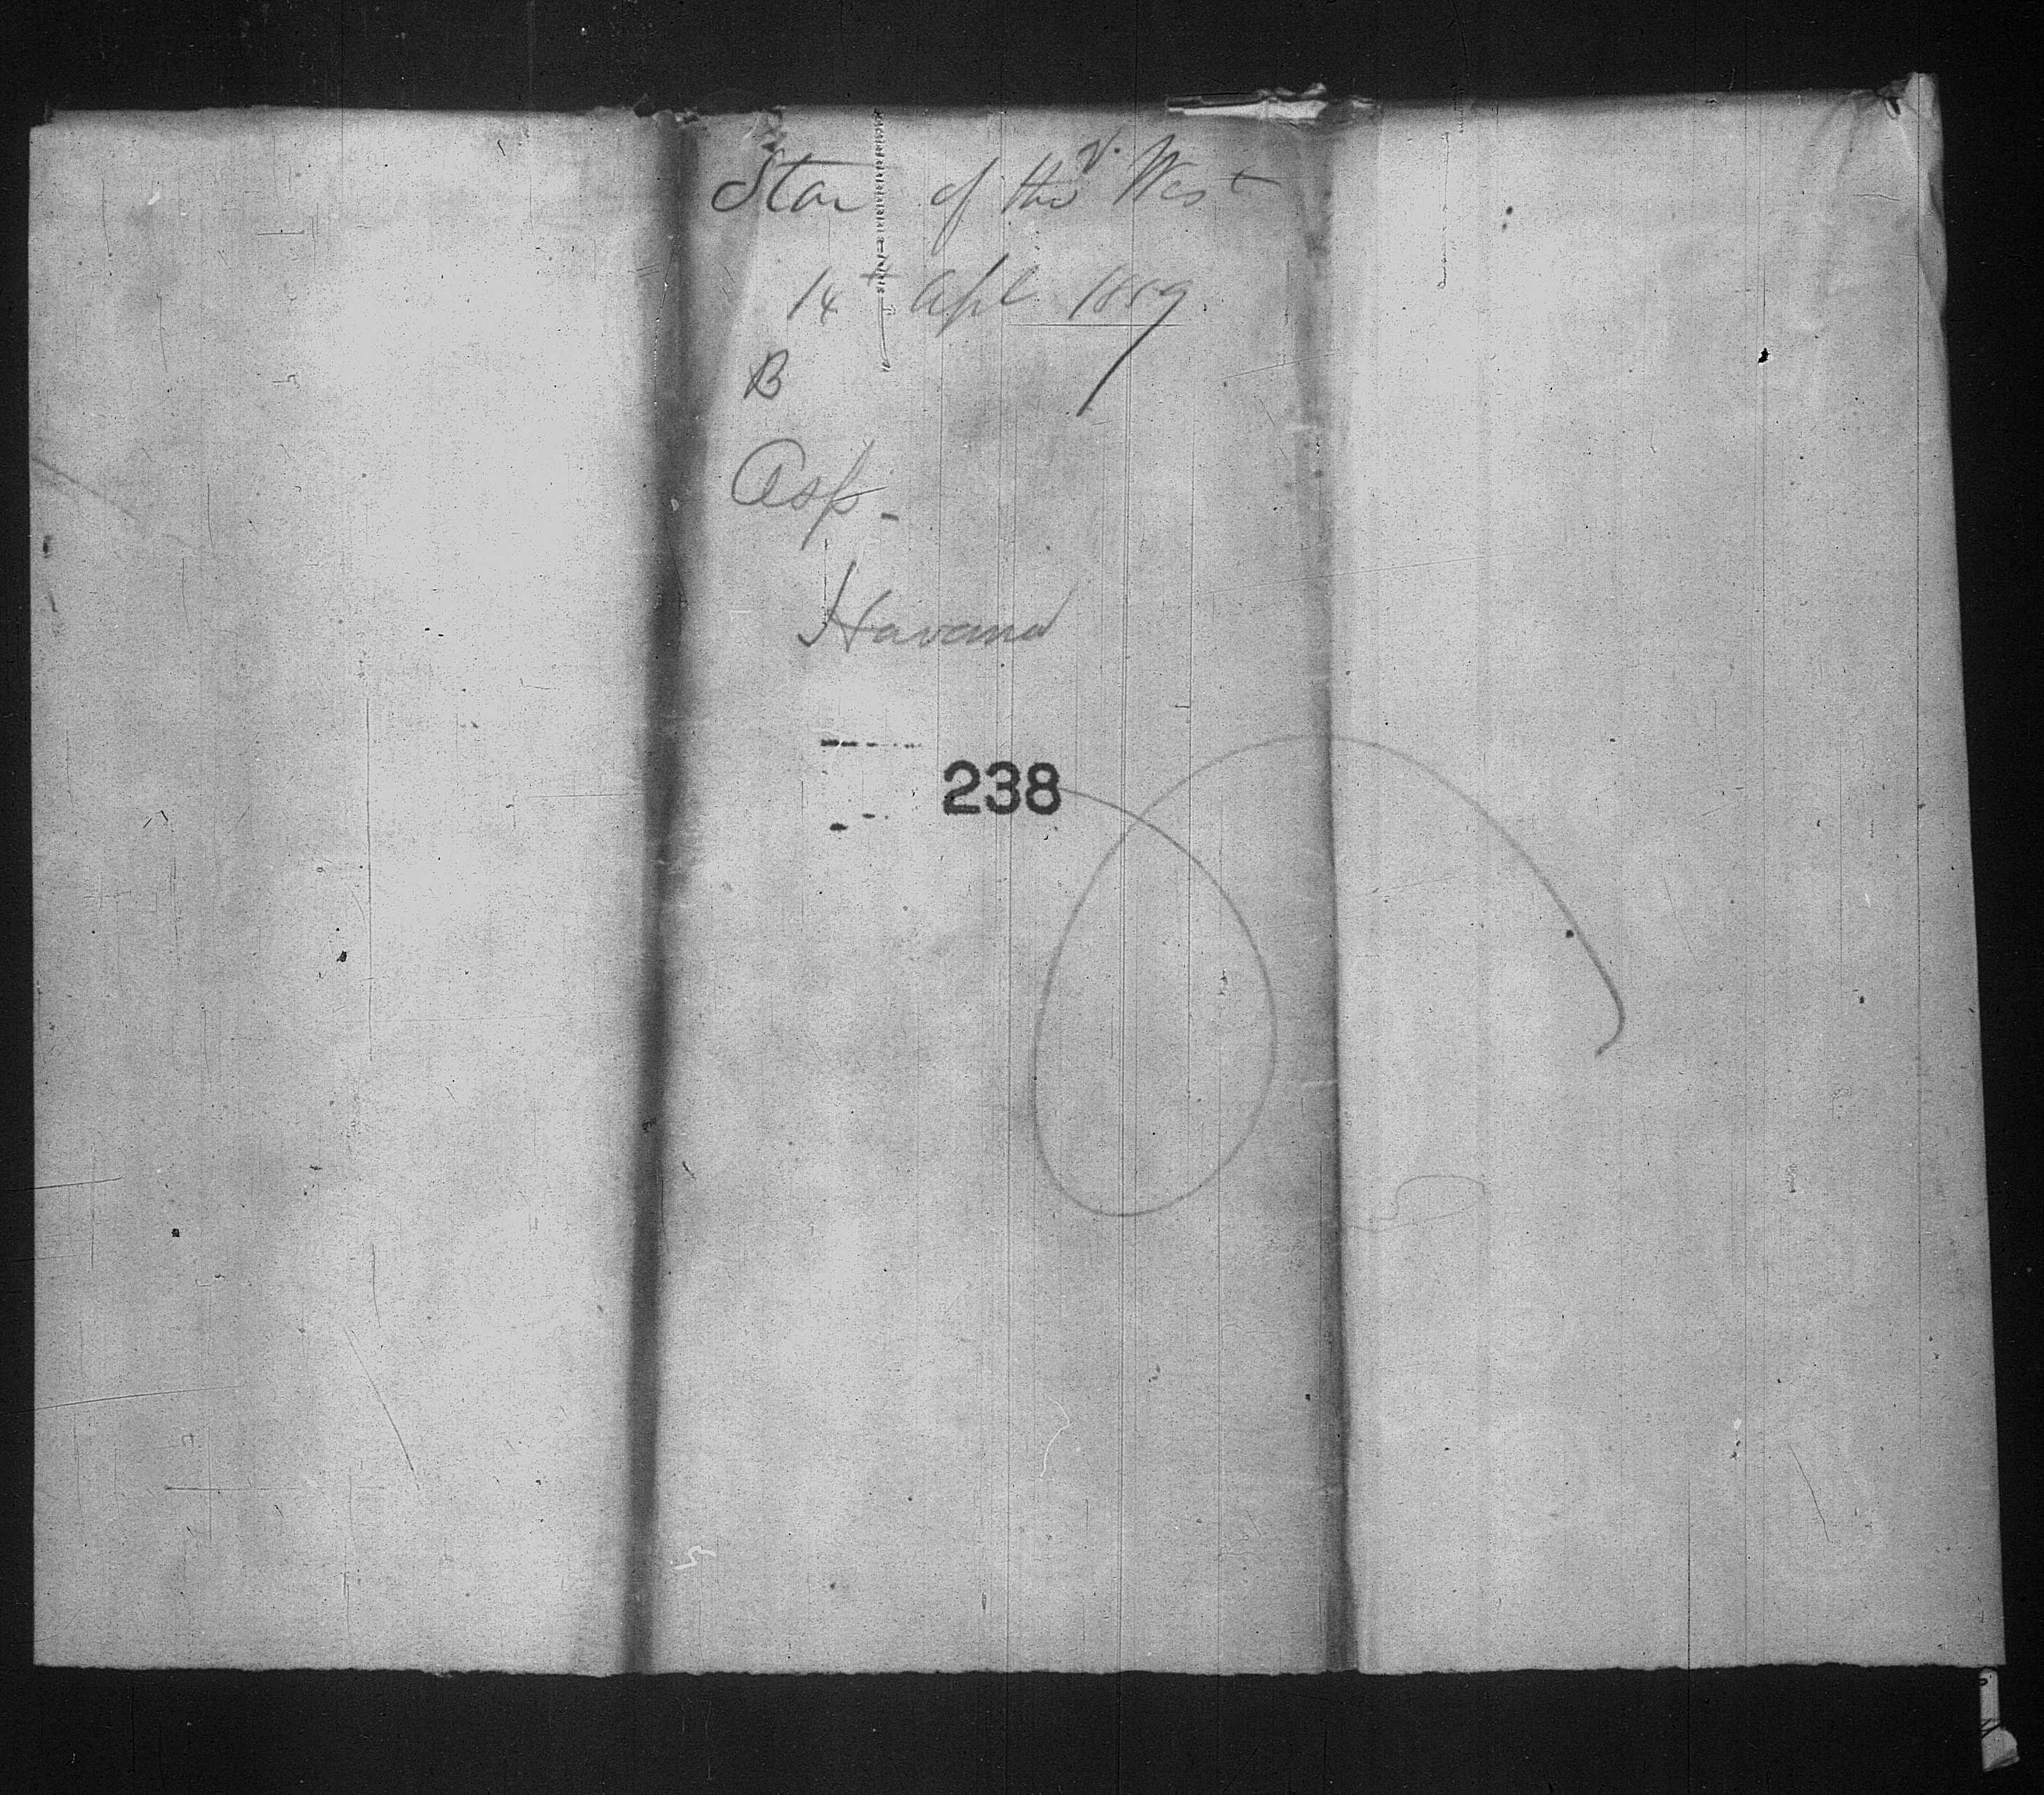 Star of the West
14 Apl 1859
B
Asp.
Havana
238